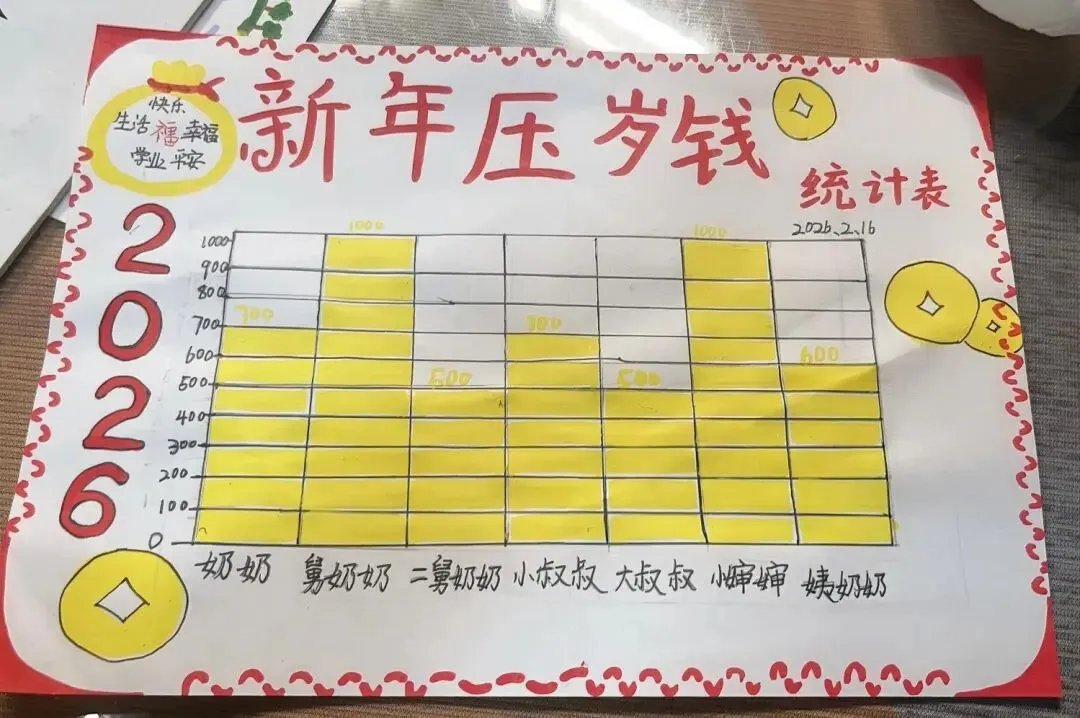 快乐
生活福幸福
学业平安
新年压岁钱
统计表
2026.2.16
2026
1000
900
800
700
600
500
400
300
200
100
0
700
1000
500
700
500
1000
600
奶奶 舅奶奶 二舅奶奶 小叔叔 大叔叔 小婶婶 姨奶奶